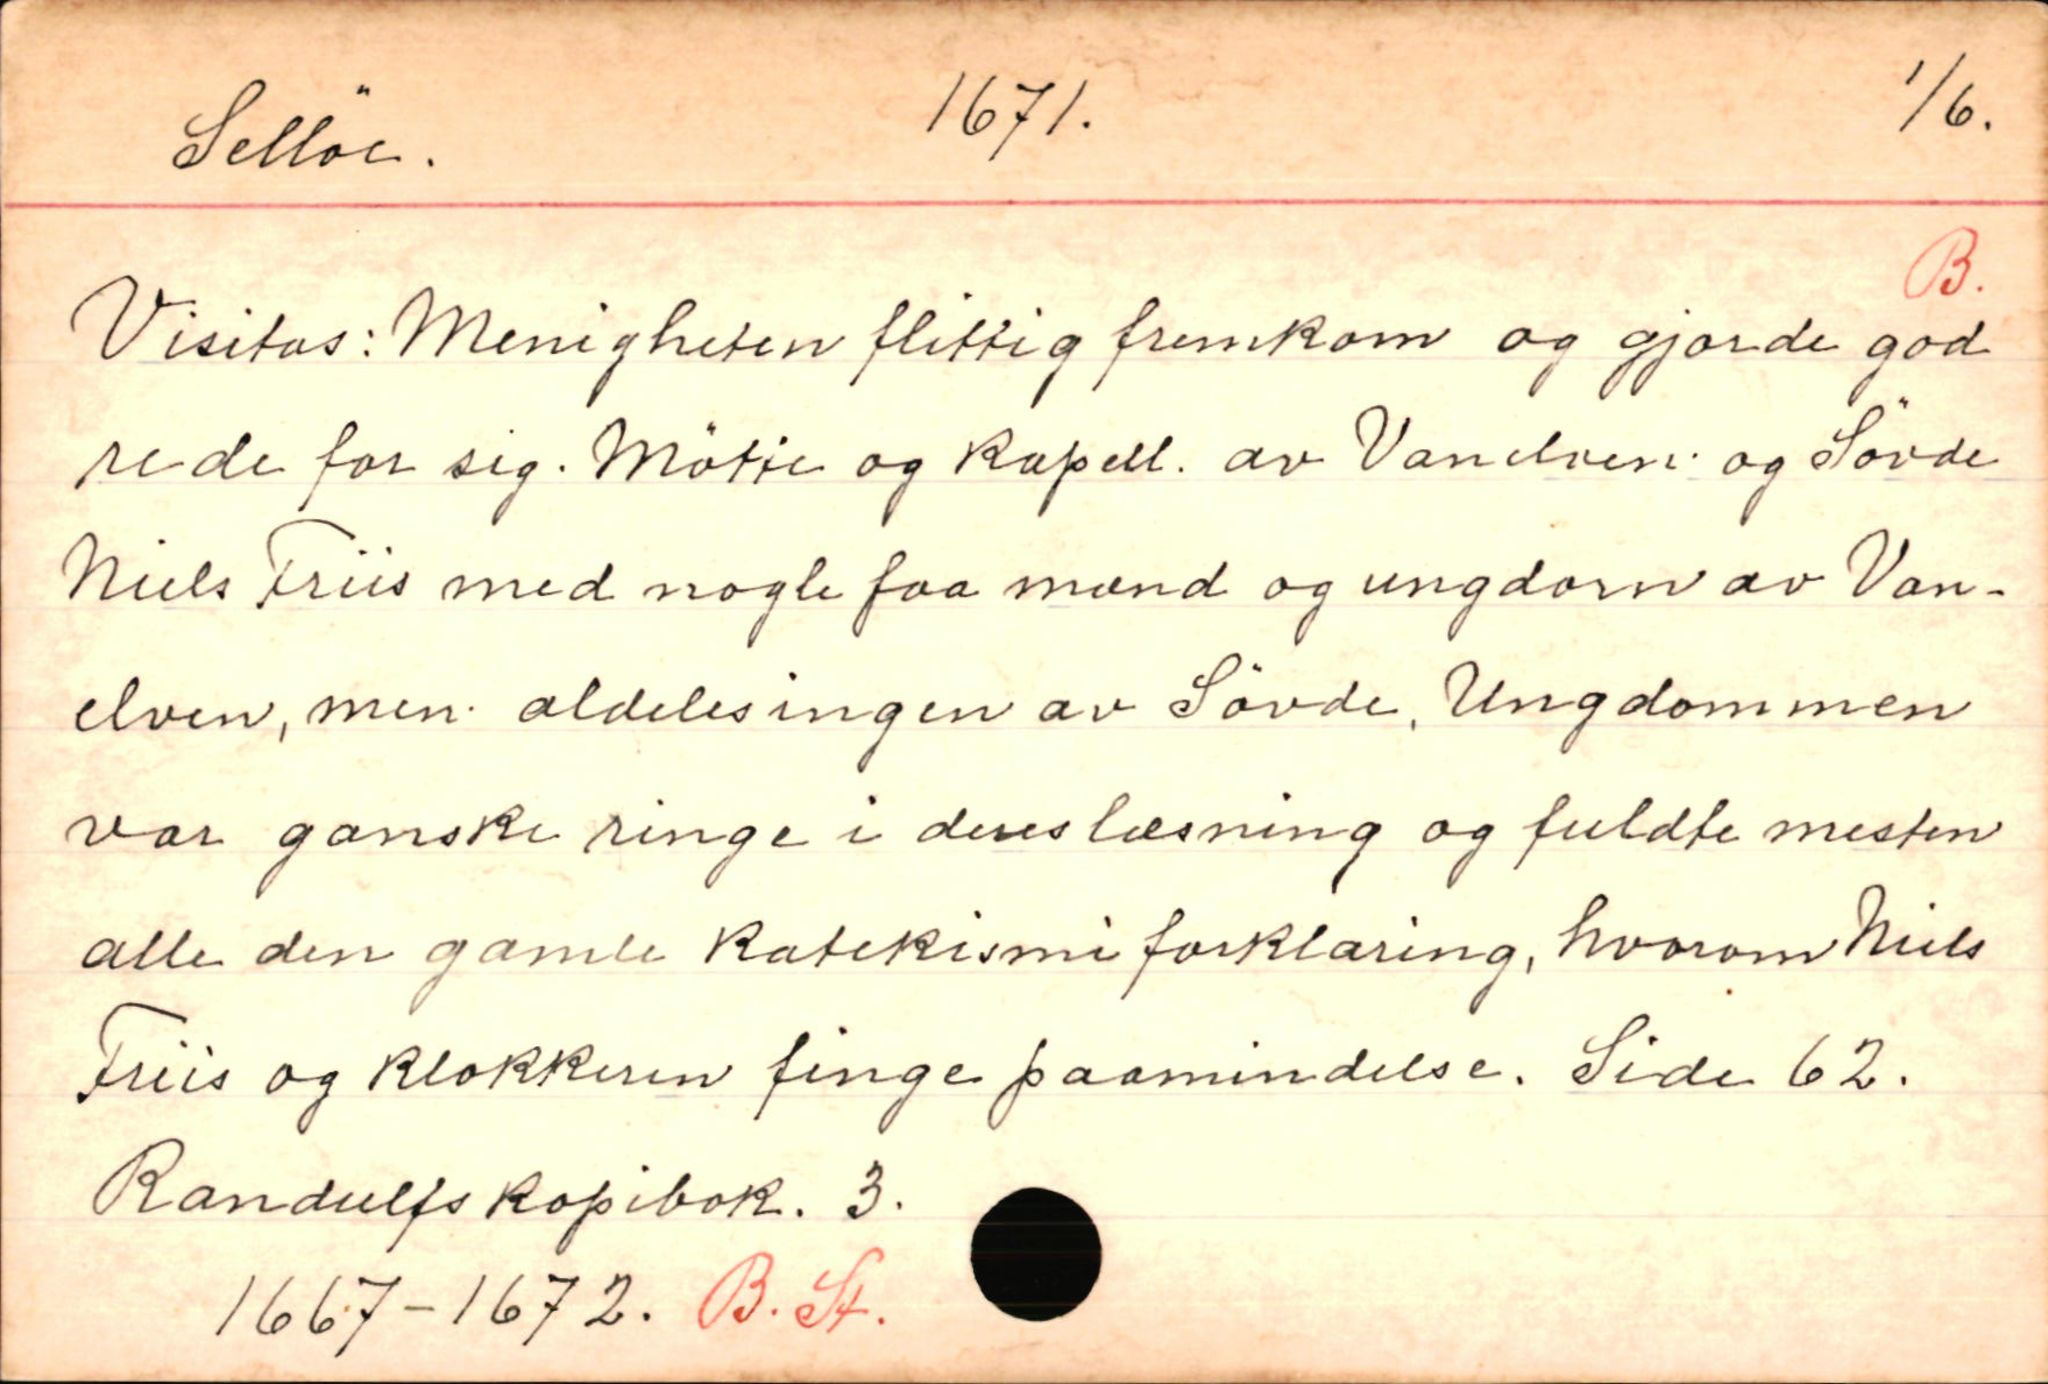 Sellöe. 1671. 1/6.
B.
Visitas: Menigheten flittig fremkom og gjorde god
rede for sig. Mötte og kapell. av Vanelven og Sövde
Niels Friis med nogle faa mænd og ungdom av Van-
elven, men aldeles ingen av Sövde. Ungdommen
var ganske ringe i deres læsning og fuldte mesten
alle den gamle katekismi forklaring, hvorom Niels
Friis og klokkeren finge paamindelse. Side 62.
Randulfs kopibok. 3.
1667-1672. B. St.